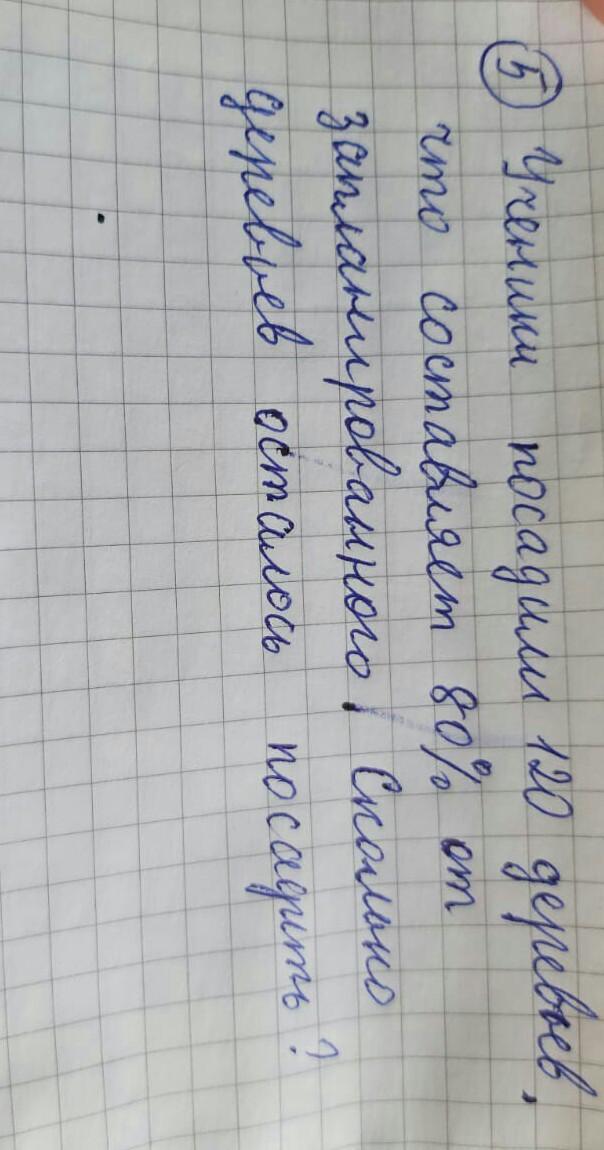 5 Ученики посадили 120 деревьев,
что составляет 80% от
запланированного. Сколько
деревьев осталось посадить?